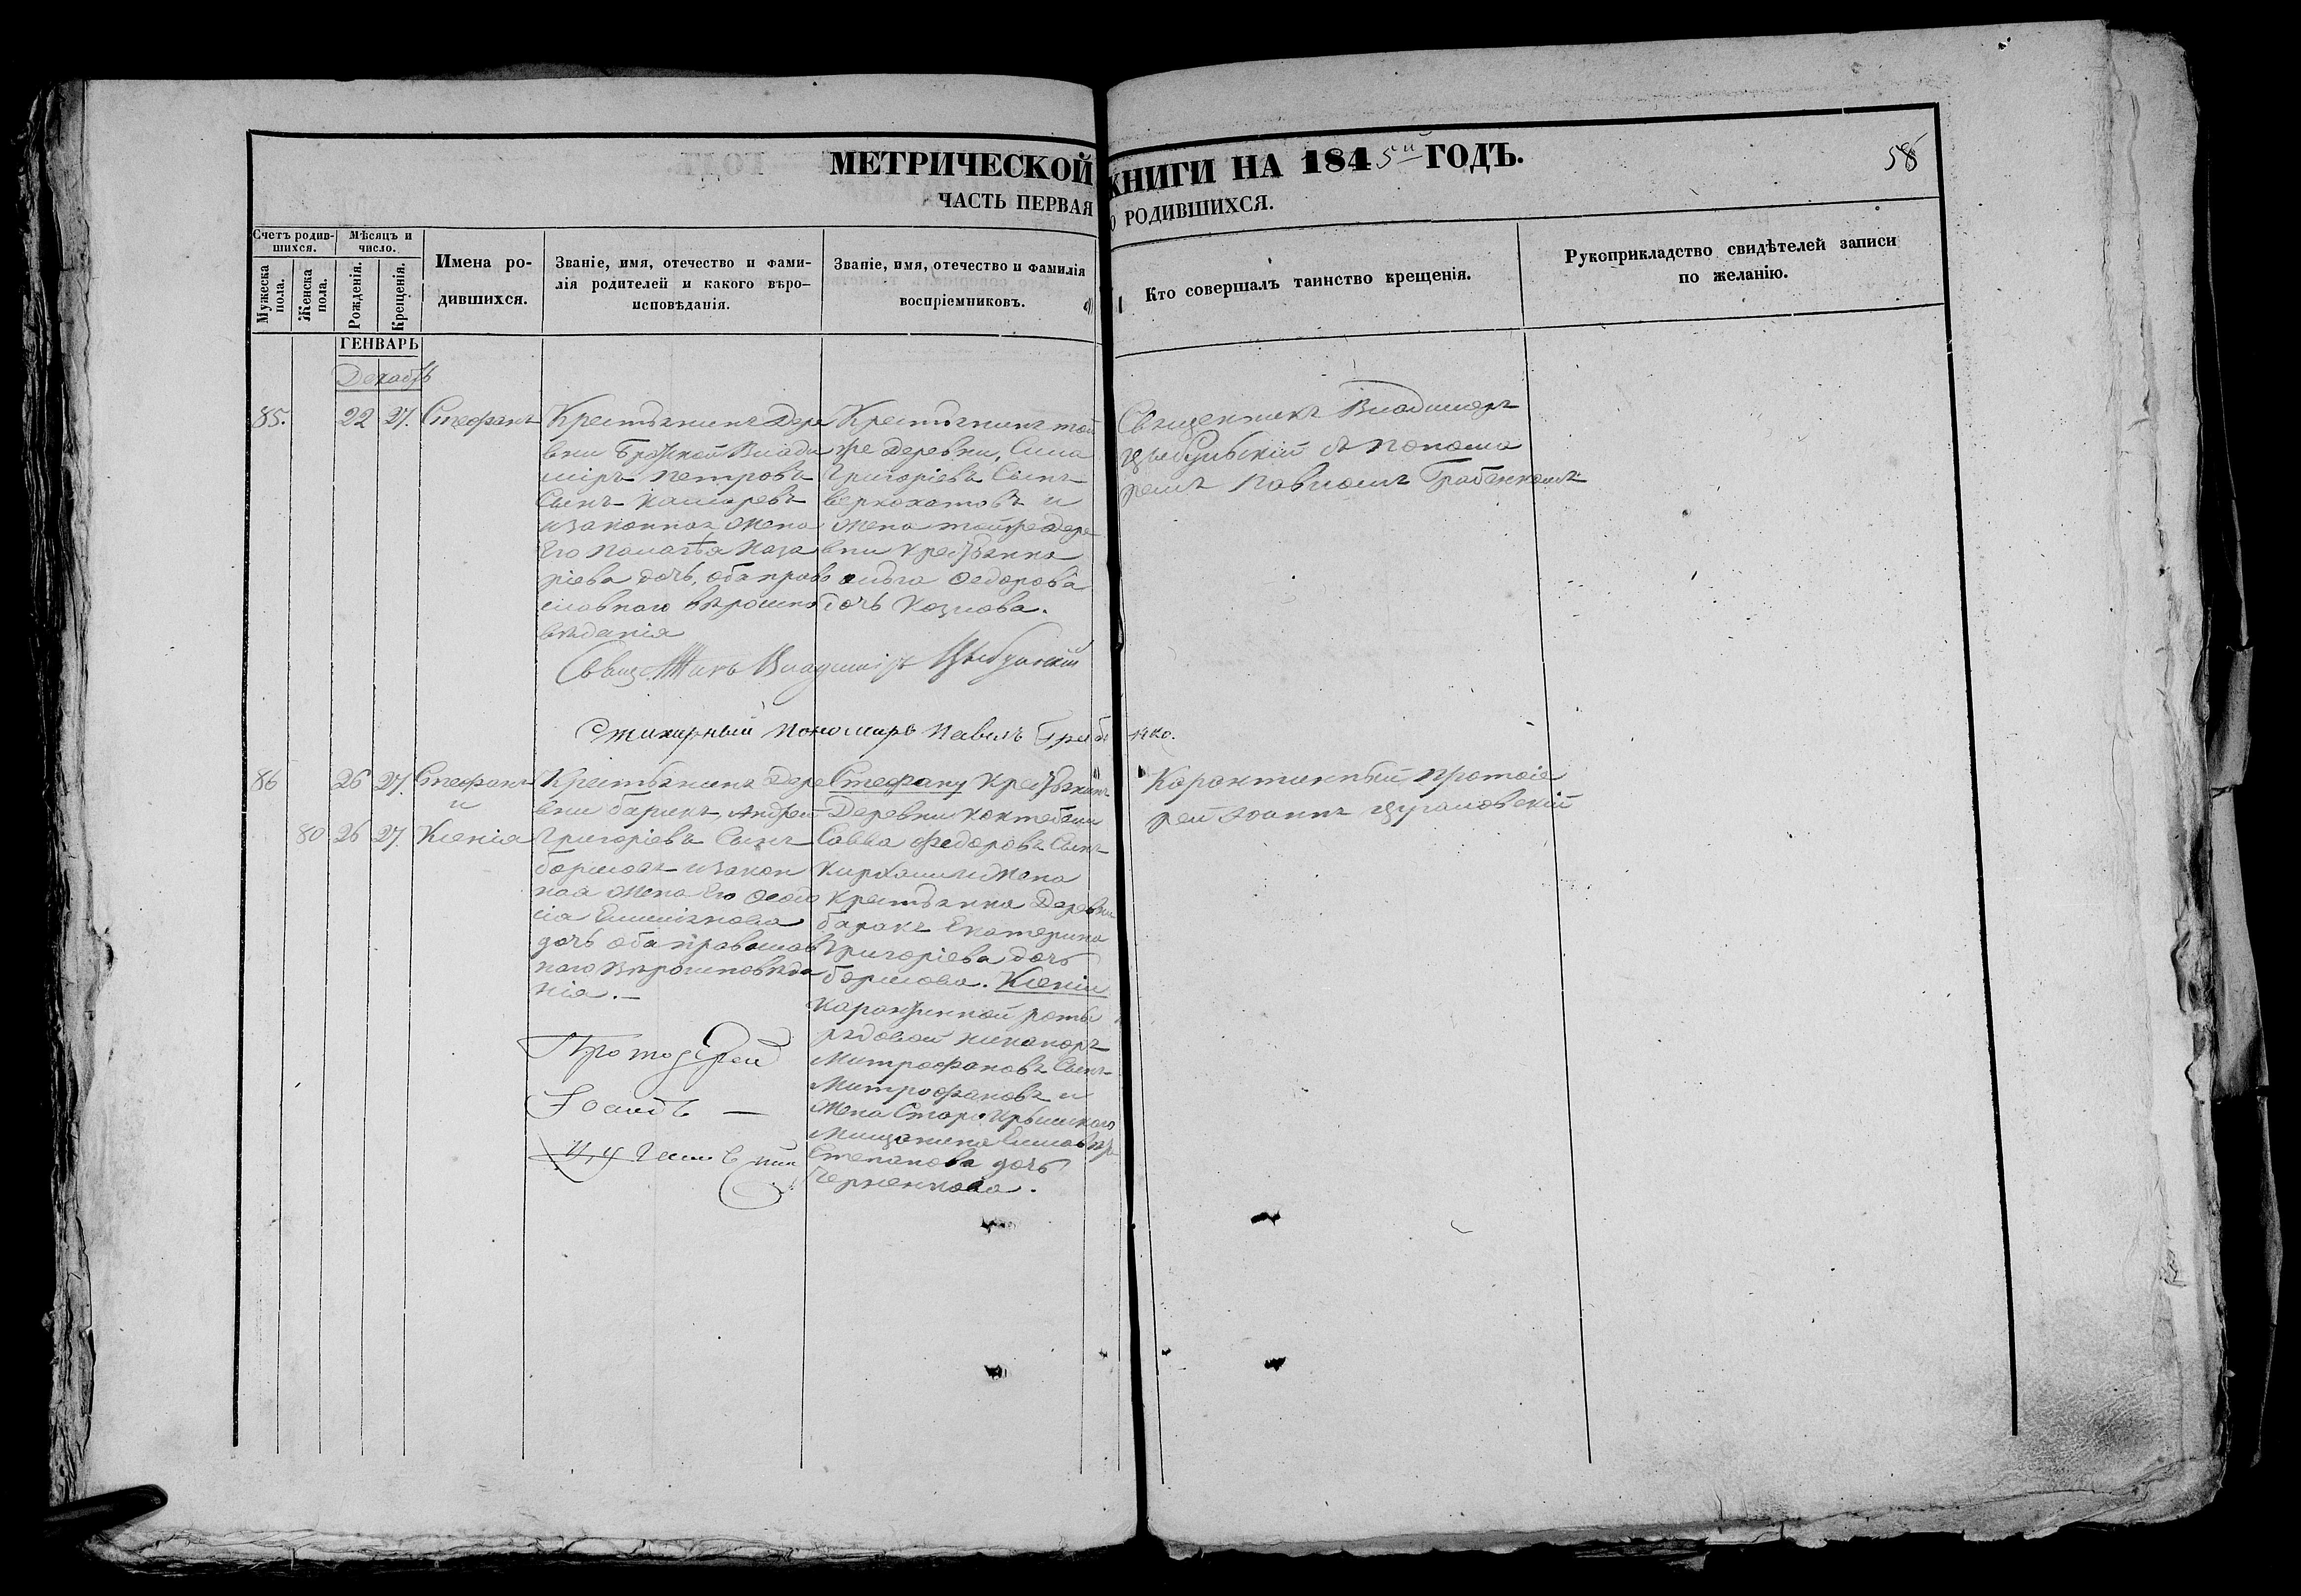 МЕТРИЧЕСКОЙ КНИГИ НА 1845й ГОДЪ.
58
ЧАСТЬ ПЕРВАЯ О РОДИВШИХСЯ.
Счетъ родившихся.
Мужеска пола.
Женска пола.
Мѣсяцъ и число.
Рожденія.
Крещенія.
Имена родившихся.
Званіе, имя, отечество и фамилія родителей и какого вѣроисповѣданія.
Званіе, имя, отечество и фамилія воспріемниковъ.
Кто совершалъ таинство крещенія.
Рукоприкладство свидѣтелей записи по желанію.
ГЕНВАРЬ
Декабрь
85.
22
27.
Стефанъ
Крестьянинъ Дере
вни Владиміръ Петровъ
Сынъ
и законная жена
Его Наза
ріева дочь, оба право
славного вѣроиспо
вѣданія
Крестьянинъ той
же деревни, Сила
Григоріевъ Сынъ
и
жена тойже дере
вни
Федорова
дочь Козлова.
Священникъ Владимиръ
Цыбульскій съ понома
ремъ Павломъ
Священникъ Владиміръ Цыбульскій
Стихарный Пономарь Павелъ
86
26
27.
Стефанъ
и
80
26
27.
Ксенія
Крестьянинъ Дере
вни Баракъ, Андрей
Григоріевъ Сынъ
и закон
ная жена Его Феодо
сія
дочь оба православ
наго вѣроисповѣда
нія.
Стефану
Деревни Коктебели
Савва Федоровъ Сынъ
жена
Крестьянка Деревни
Баракъ Екатерина
Григоріева дочь
Ксеніи
Карантинной роты
рядовой Никаноръ
Митрофановъ Сынъ
Митрофановъ и
жена Старокрымского
Мищанина Елисавета
Степанова дочь
Черненкова.
Карантинный Протоіе
рей Іоаннъ
Протоіерей
Іоаннъ